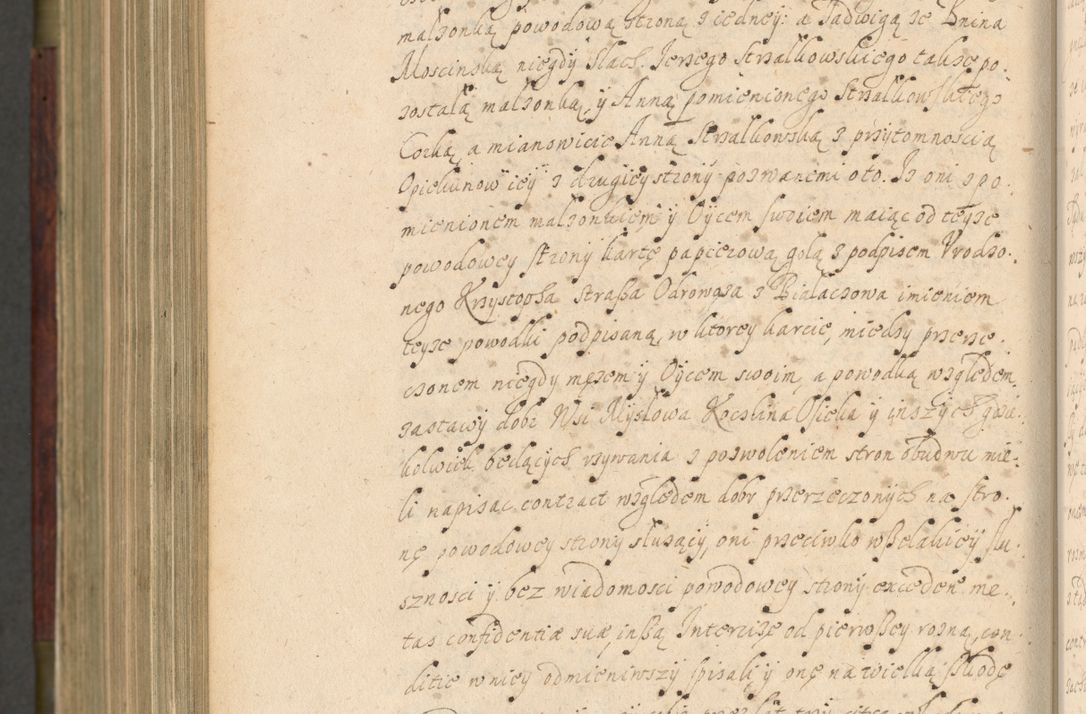 małżonką powodową stroną z iedney: a Jadwigą ze Bnina
Moscinską niegdy Slach. Jerzego Strzałkowskiego także po-
zostałą małżonką, y Anną pomienionego Strzałkowskiego
Corką, a mianowicie Anną Strzałkowską z przytomnoscią
Opiekunow icy z drugiey strony pozwanemi oto. Jż oni z po-
mienionem małżonkiem y Oycem swoiem maiąc od teyże
powodowey strony kartę papierową gołą z podpisem Vrodzo-
nego Krzysztopha Straßa Odrowąża z Białaczowa imieniem
teyże powodki podpisaną, w ktorey karcie, miedzy przerze-
czonem niegdy mężem y Oycem swoim, a powodką względem
zastawy dobr Wsi Mysłowa Kochlina Osieka y inszych gdzie-
kolwiek będących vzywania z pozwoleniem stron obudwu mie-
li napisac contract względem dobr przerzeczonych na stro-
nę powodowey strony służący, oni przeciwko wszelakiey słu-
sznosci y bez wiadomosci powodowey strony excedendo me-
tas confidentiæ suæ, inszą Intercizę od pierwszey rozną, con-
ditie w niey odmieniwszy spisali y onę na wielką szkodę